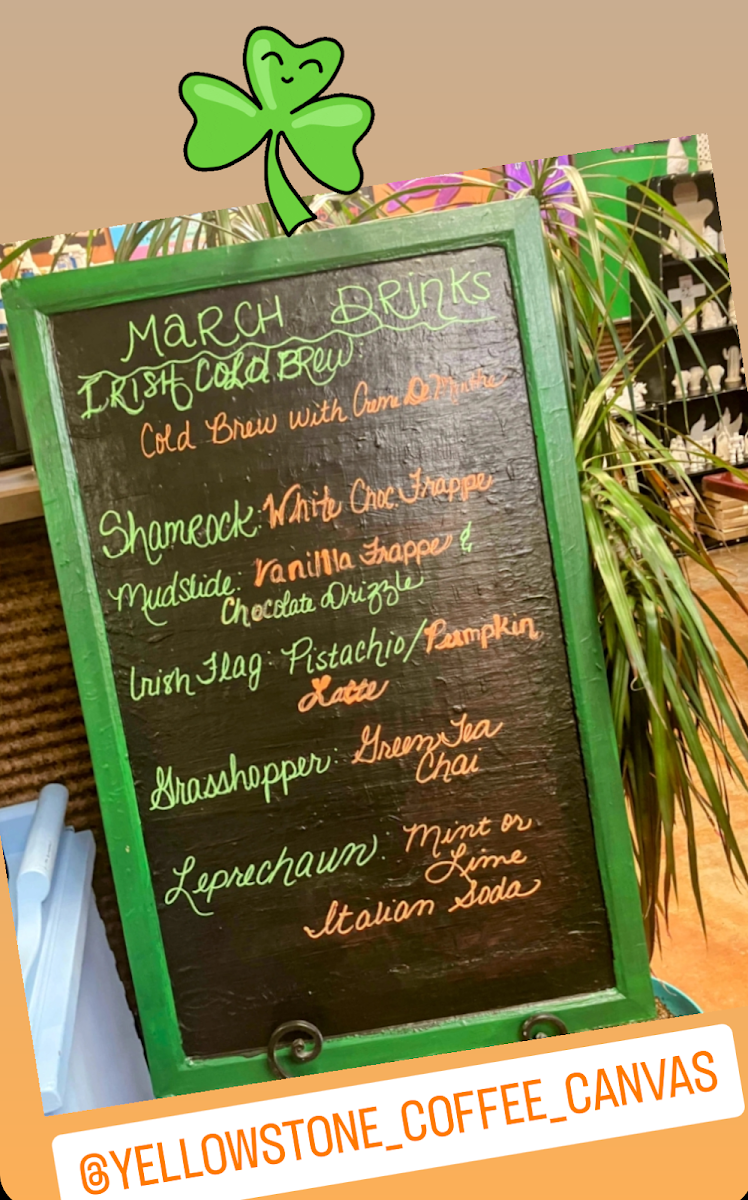 MARCH DRINKS
IRISH COLD BREW
Cold Brew with Creme De Menthe
Shamrock: White Choc. Frappe
Mudslide: Vanilla Frappe &
Chocolate Drizzle
Irish Flag: Pistachio/Pumpkin
Latte
Grasshopper: Green Tea
Chai
Leprechaun: Mint or
Lime
Italian Soda
@YELLOWSTONE_COFFEE_CANVAS